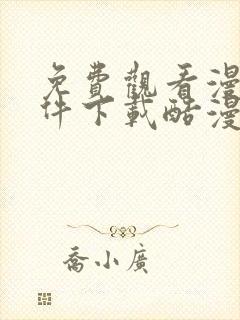 免費觀看漫
件下載酷漫
喬小廣